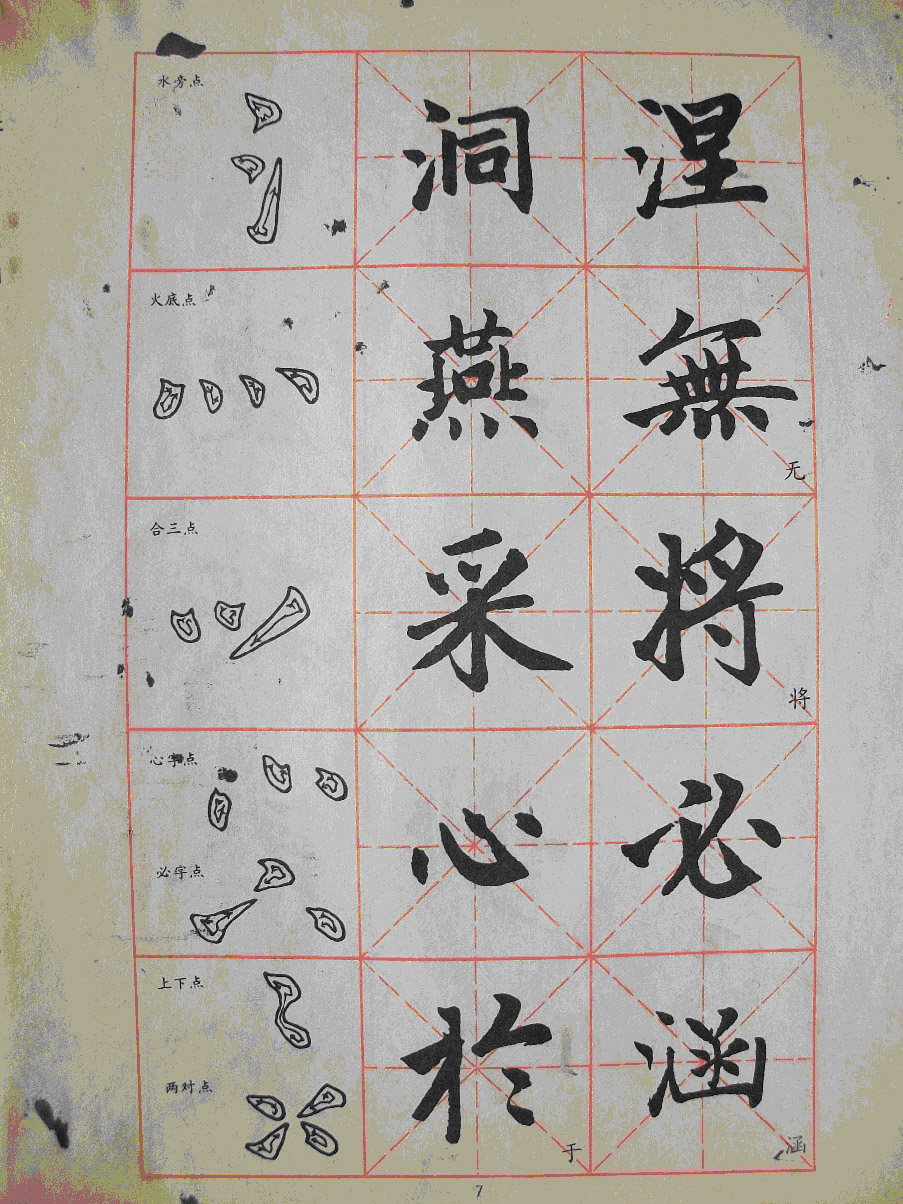 水旁点 洞 涅
火底点 燕 無 无
合三点 采 将 将
心字点 心 必
必字点
上下点 於 涵
两对点 于 涵
7